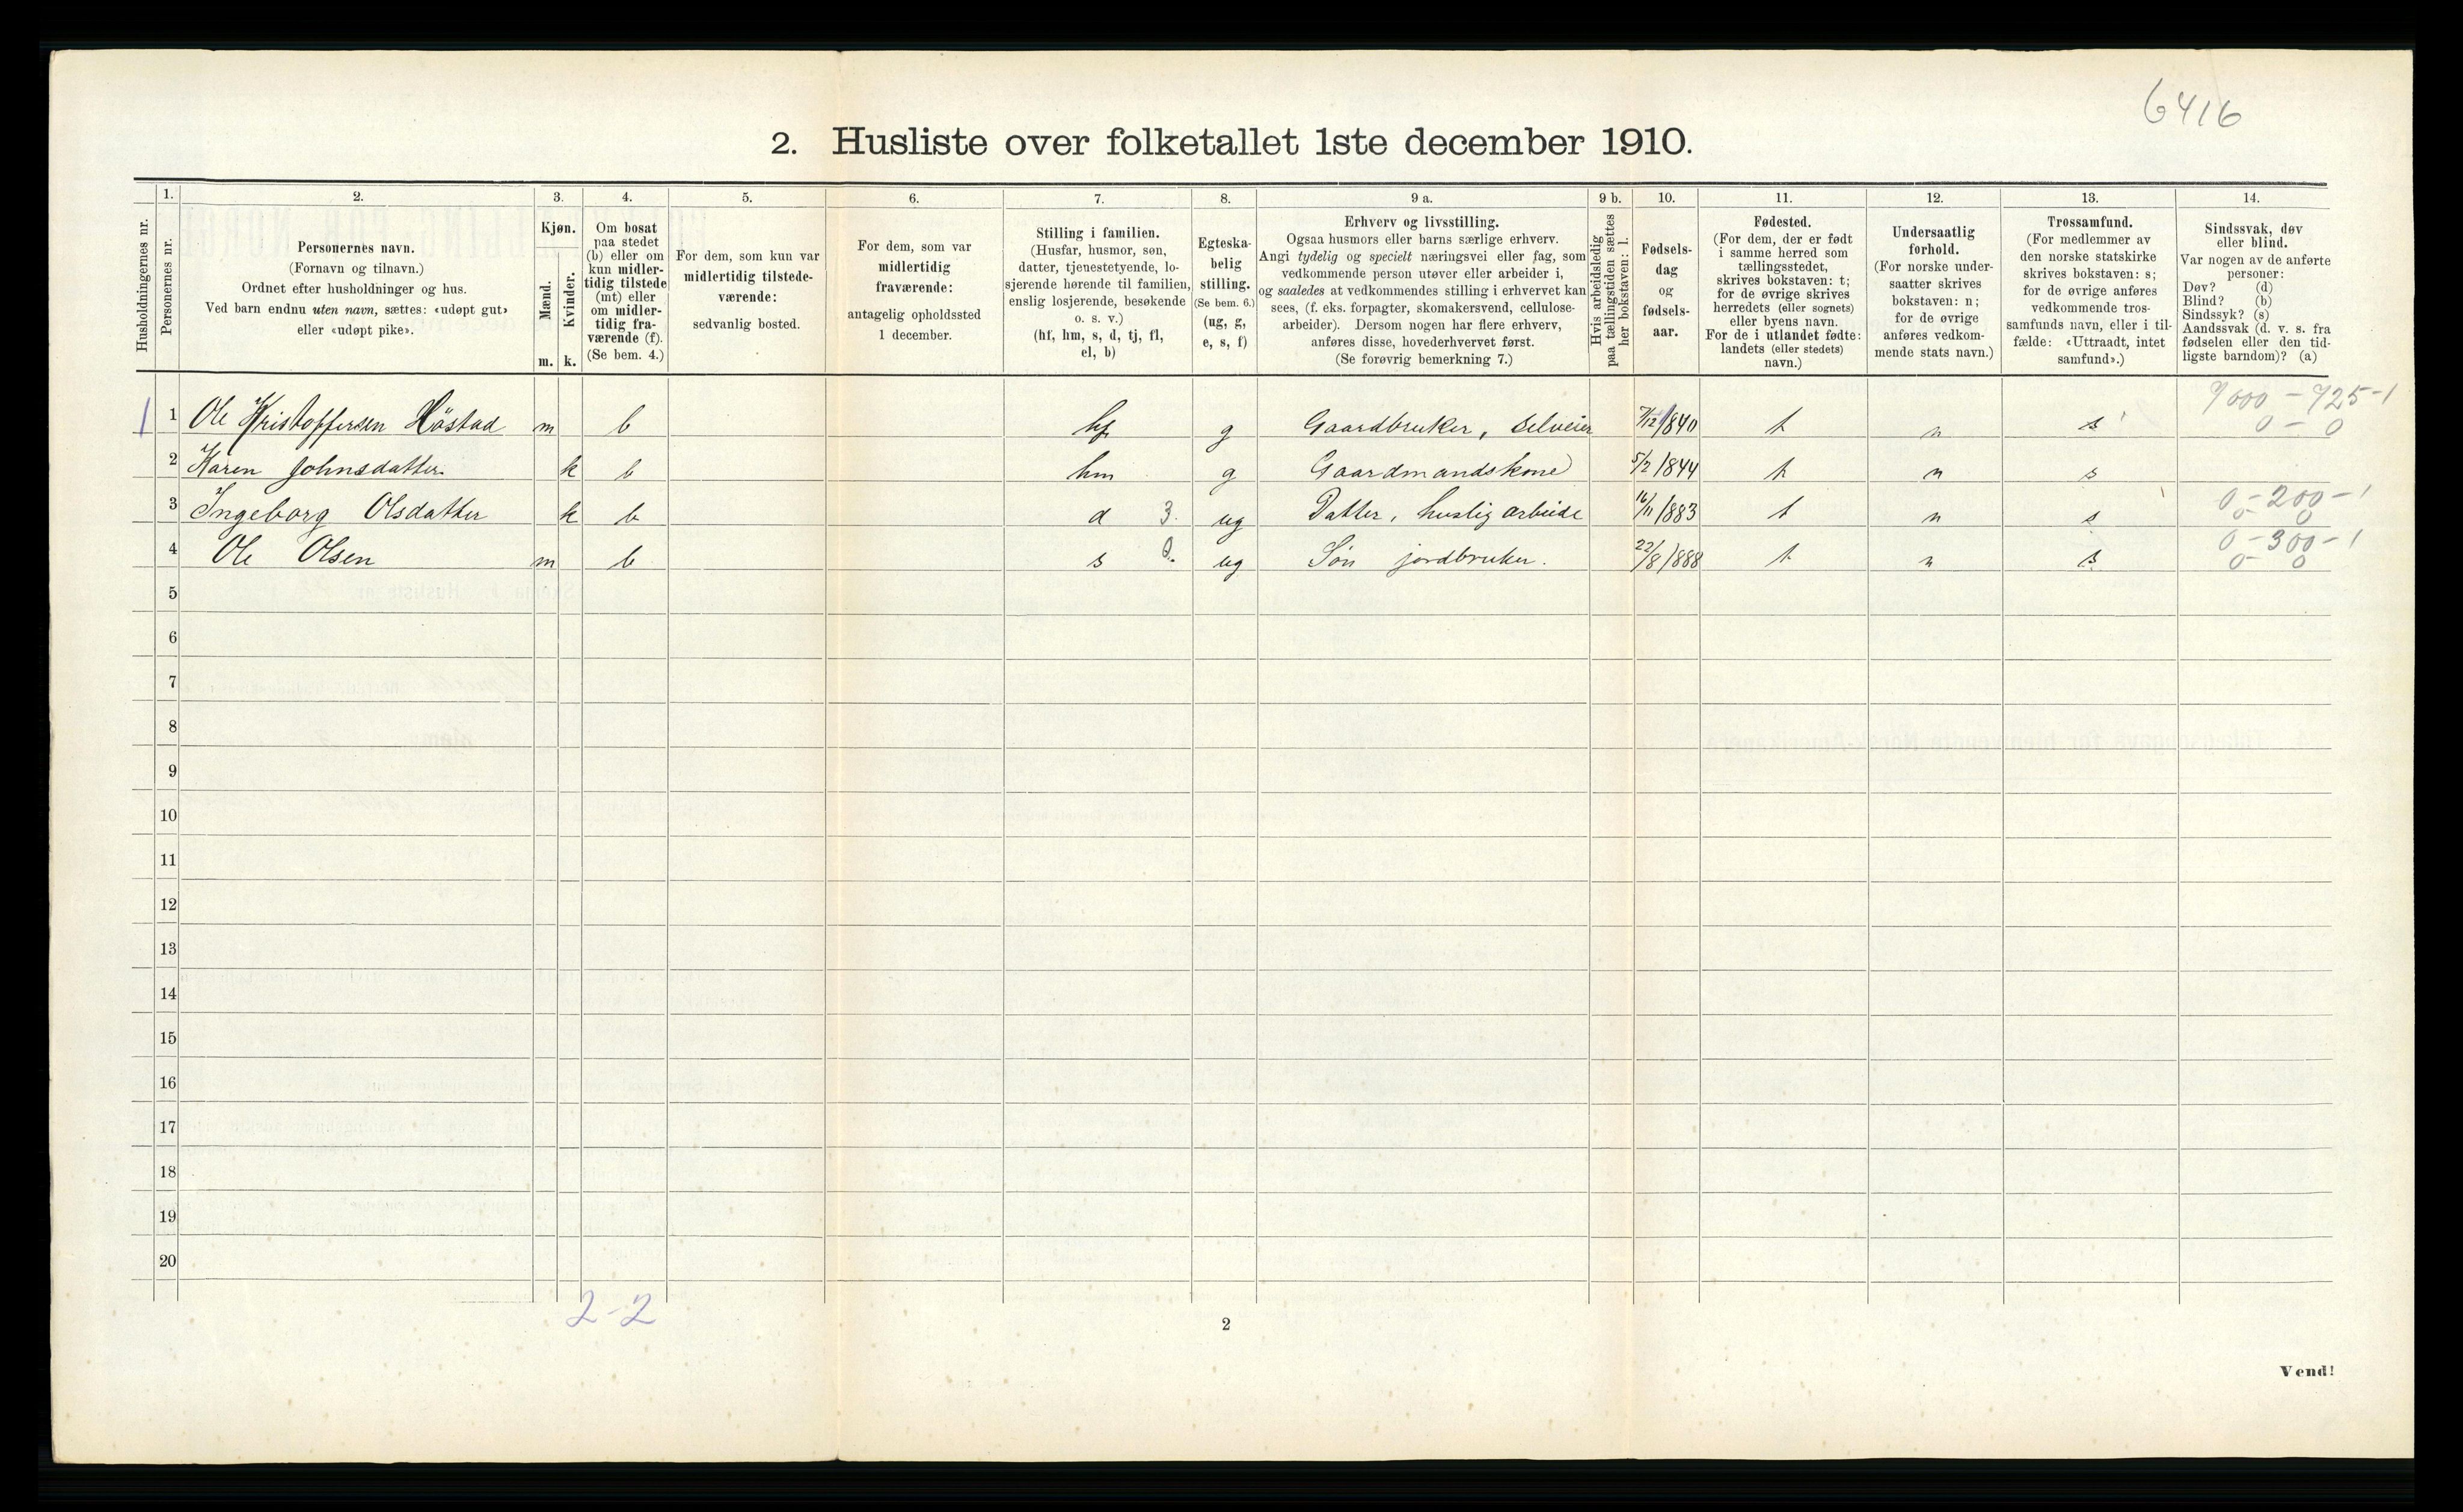 6416
2. Husliste over folketallet 1ste december 1910.
Husholdningernes nr.
1.
Personernes nr.
2.
Personernes navn.
(Fornavn og tilnavn.)
Ordnet efter husholdninger og hus.
Ved barn endnu uten navn, sættes: «udøpt gut»
eller «udøpt pike».
3.
Kjøn.
Mænd.
Kvinder.
m. k.
4.
Om bosat
paa stedet
(b) eller om
kun midler-
tidig tilstede
(mt) eller
om midler-
tidig fra-
værende (f).
(Se bem. 4.)
5.
For dem, som kun var
midlertidig tilstede-
værende:
sedvanlig bosted.
6.
For dem, som var
midlertidig
fraværende:
antagelig opholdssted
1 december.
7.
Stilling i familien.
(Husfar, husmor, søn,
datter, tjenestetyende, lo-
sjerende hørende til familien,
enslig losjerende, besøkende
o. s. v.)
(hf, hm, s, d, tj, fl,
el, b)
8.
Egteska-
belig
stilling.
(Se bem. 6.)
(ug, g,
e, s, f)
9 a.
Erhverv og livsstilling.
Ogsaa husmors eller barns særlige erhverv.
Angi tydelig og specielt næringsvei eller fag, som
vedkommende person utøver eller arbeider i,
og saaledes at vedkommendes stilling i erhvervet kan
sees, (f. eks. forpagter, skomakersvend, cellulose-
arbeider). Dersom nogen har flere erhverv,
anføres disse, hovederhvervet først.
(Se forøvrig bemerkning 7.)
9 b.
Hvis arbeidsledig
paa tællingstiden sættes
her bokstaven: l.
10.
Fødsels-
dag
og
fødsels-
aar.
11.
Fødested.
(For dem, der er født
i samme herred som
tællingsstedet,
skrives bokstaven: t;
for de øvrige skrives
herredets (eller sognets)
eller byens navn.
For de i utlandet fødte:
landets (eller stedets)
navn.)
12.
Undersaatlig
forhold.
(For norske under-
saatter skrives
bokstaven: n;
for de øvrige
anføres vedkom-
mende stats navn.)
13.
Trossamfund.
(For medlemmer av
den norske statskirke
skrives bokstaven: s;
for de øvrige anføres
vedkommende tros-
samfunds navn, eller i til-
fælde: «Uttraadt, intet
samfund».)
14.
Sindssvak, døv
eller blind.
Var nogen av de anførte
personer:
Døv? (d)
Blind? (b)
Sindssyk? (s)
Aandssvak (d. v. s. fra
fødselen eller den tid-
ligste barndom)? (a)
1 1 Ole Kristoffersen Höstad m b hf g Gaardbruker, selveier 7/12 1840 t n s 9000-725-1
0-0
2 Karen Johnsdatter k b hm g Gaardmandskone 5/2 1844 t n s
3 Ingeborg Olsdatter k b d 3. ug Datter, huslig arbeide 16/11 1883 t n s 0-200-1
0-0
4 Ole Olsen m b s ug Søn jordbruker. 22/8 1888 t n s 0-300-1
0-0
5
6
7
8
9
10
11
12
13
14
15
16
17
18
19
20
2-2
2
Vend!